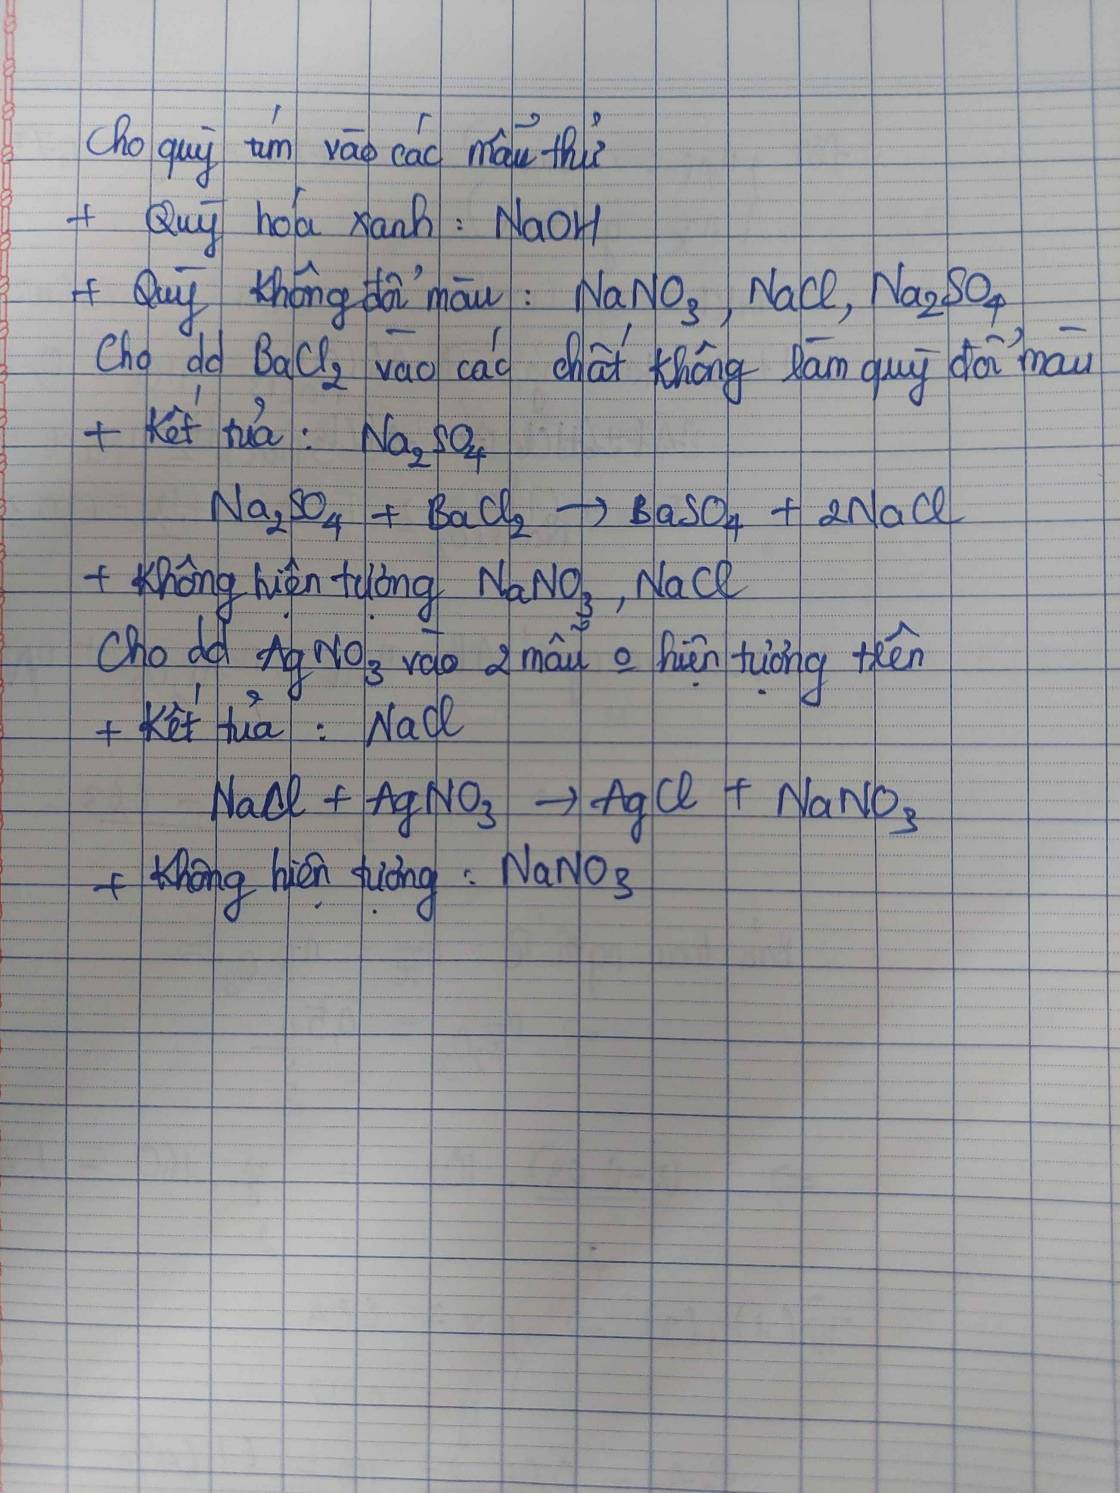 Cho quỳ tím vào các mẫu thử
+ Quỳ hóa xanh : NaOH
+ Quỳ không đổi màu : NaNO₃, NaCl, Na₂SO₄
Cho dd BaCl₂ vào các chất không làm quỳ đổi màu
+ Kết tủa : Na₂SO₄
Na₂SO₄ + BaCl₂ → BaSO₄ + 2NaCl
+ Không hiện tượng NaNO₃, NaCl
Cho dd AgNO₃ vào 2 mẫu o hiện tượng trên
+ Kết tủa : NaCl
NaCl + AgNO₃ → AgCl + NaNO₃
+ Không hiện tượng : NaNO₃